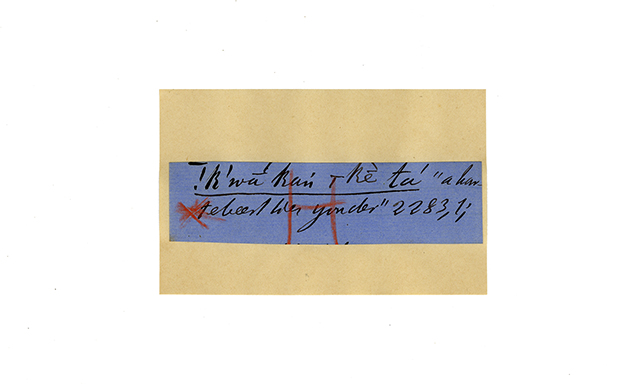 !k'wā́ kaṅ ⊤ kē̆ tá "a har-
tebeest lies yonder" 2283,1;